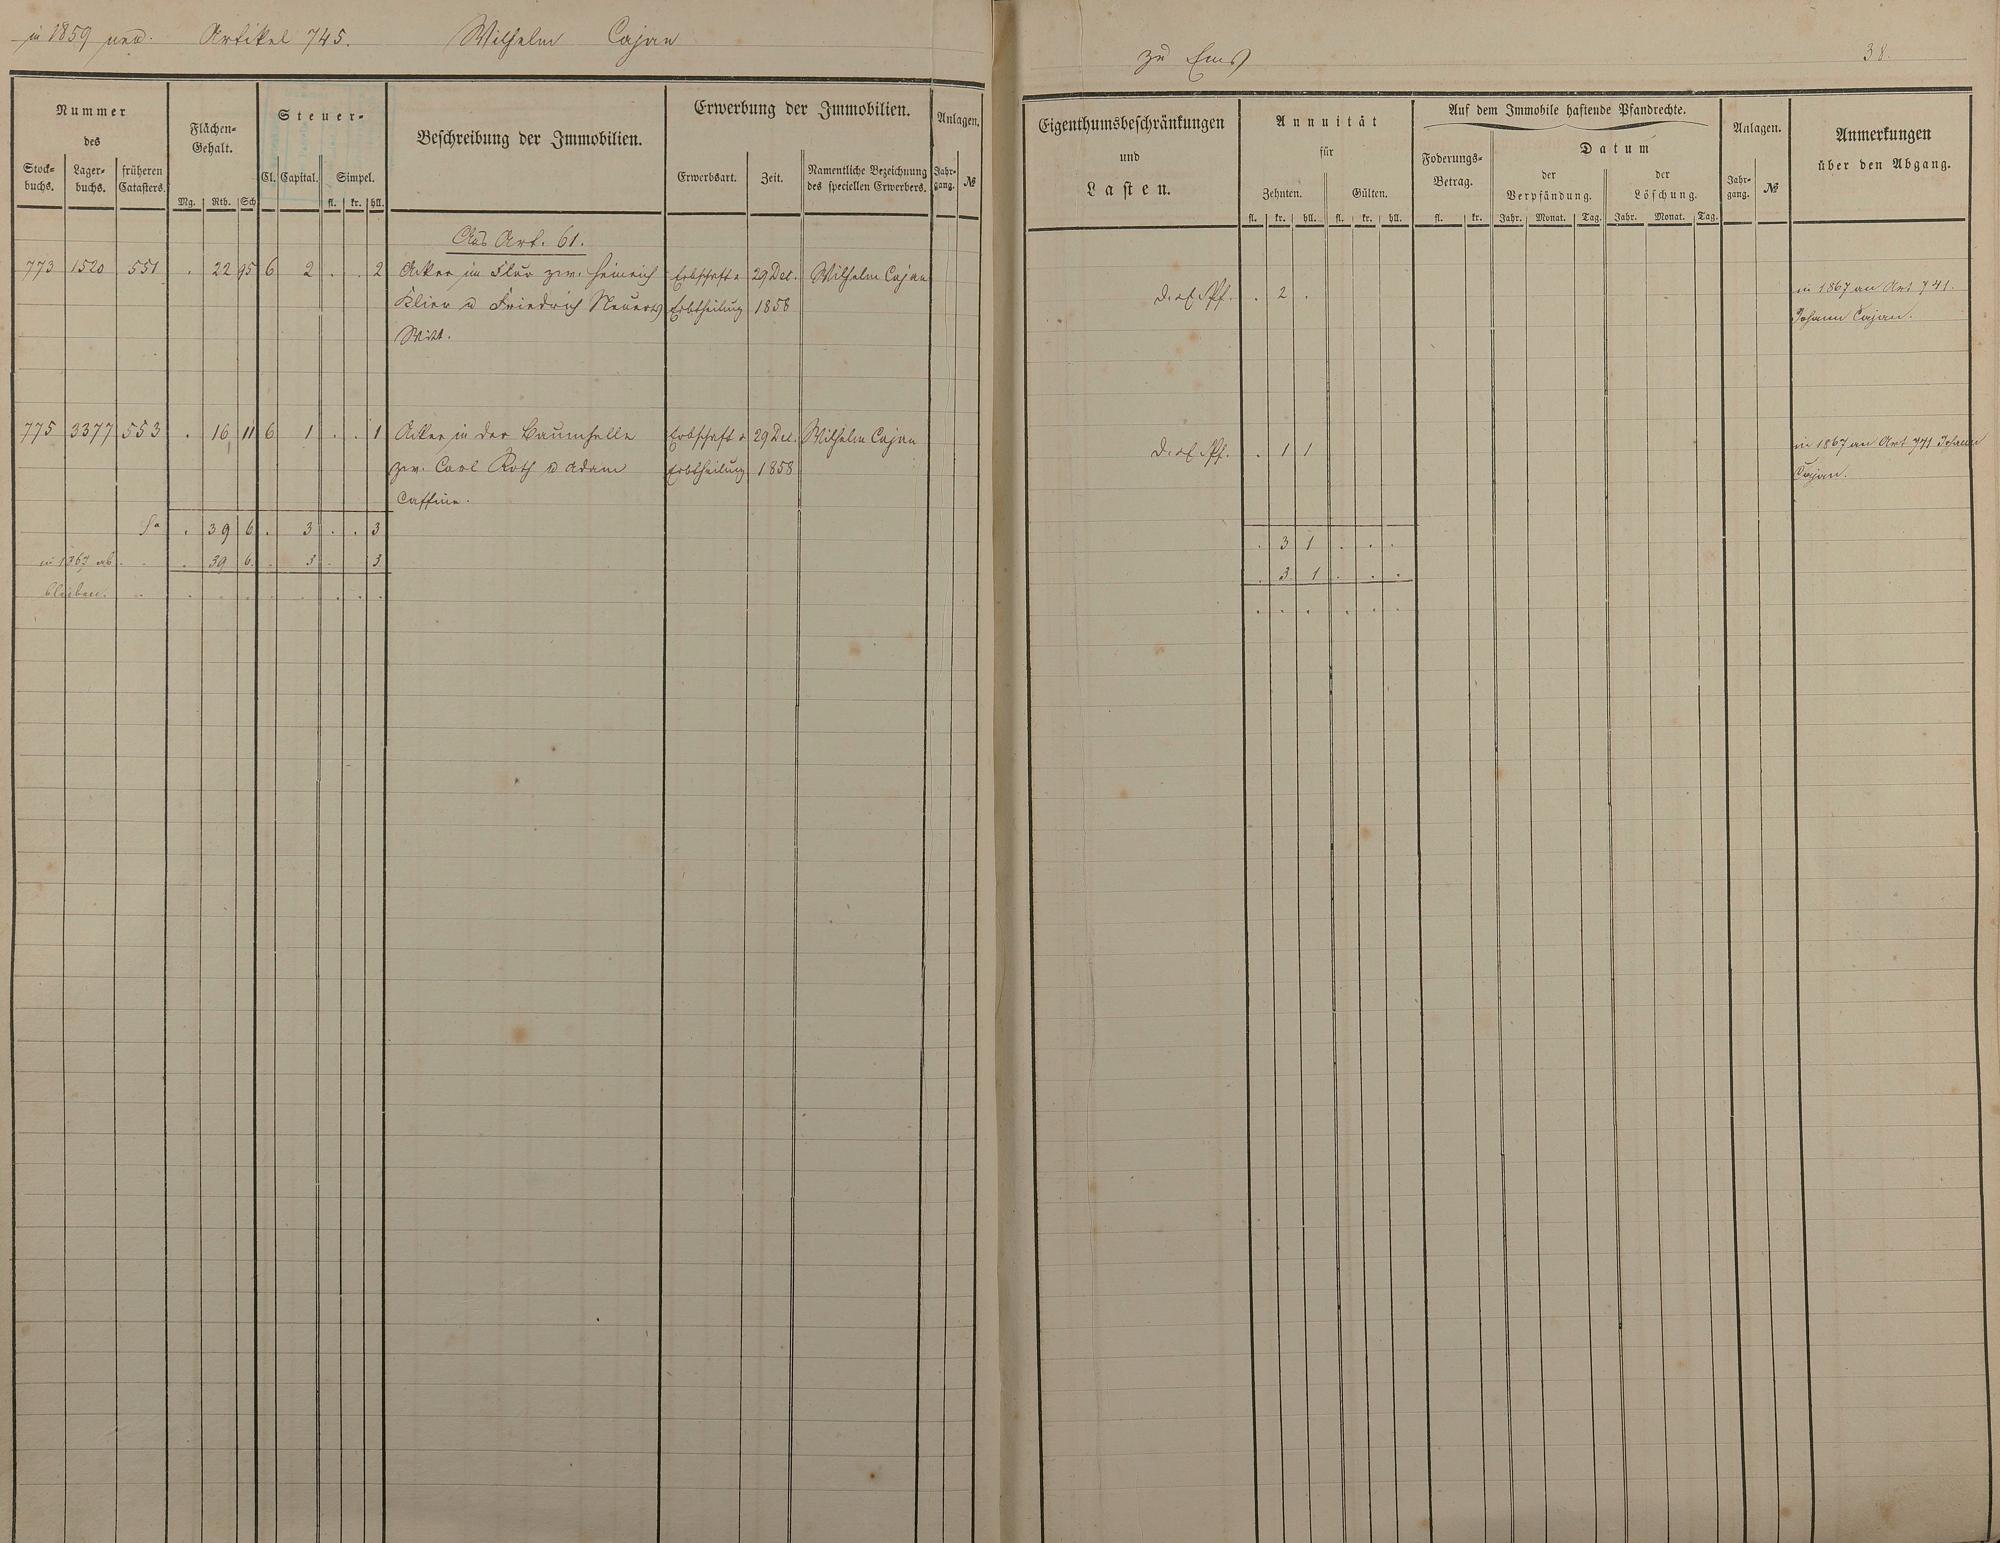 in 1859 neu. Artikel 745. Wilhelm Cajan
zu Ems 38.
Nummer
des
Stock-
buchs.
Lager-
buchs.
früheren
Catasters.
Flächen-
Gehalt.
Mg. Rth. Sch
Steuer-
Cl. Capital. Simpel.
fl. kr. hll.
Beschreibung der Immobilien.
Erwerbung der Immobilien.
Erwerbsart. Zeit.
Namentliche Bezeichnung
des speciellen Erwerbers.
Anlagen.
Jahr-
gang.
№
Eigenthumsbeschränkungen
und
Lasten.
Annuität
für
Zehnten. Gülten.
fl. kr. hll. fl. kr. hll.
Auf dem Immobile haftende Pfandrechte.
Foderungs-
Betrag.
fl. kr.
Datum
der
Verpfändung.
der
Löschung.
Jahr. Monat. Tag. Jahr. Monat. Tag.
Anlagen.
Jahr-
gang.
№
Anmerkungen
über den Abgang.
Aus Art. 61.
773 1520 551 . 22 95 6 2 . . 2 Acker im Flur zw. Heinrich Erbschaft u 29 Dec. Wilhelm Cajan
Klier u Friedrich Erbtheilung 1858
Witt.
. 2 .
in 1867 an Art 741.
Johann Cajan.
775 3377 553 . 16 11 6 1 . . 1 Acker in der Baumhelle Erbschaft u 29 Dec. Wilhelm Cajan
zw. Carl Roth u Adam Erbtheilung 1858
Caffine.
. 1 1
in 1867 an Art 741 Johann
Cajan.
Sa . 39 6 . 3 . . 3
. 3 1 . . .
in 1867 ab . . . 39 6 . 3 . 3
. 3 1 . . .
bleiben. . . . . . . . . .
. . . . . .